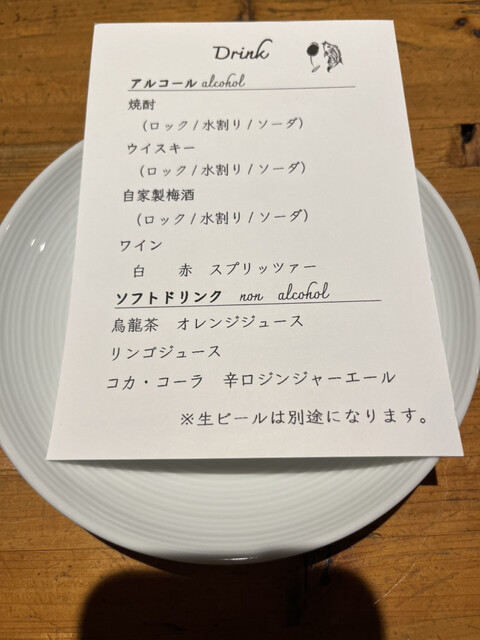 Drink
アルコール alcohol
焼酎
(ロック/水割り/ソーダ)
ウイスキー
(ロック/水割り/ソーダ)
自家製梅酒
(ロック/水割り/ソーダ)
ワイン
白 赤 スプリッツァー
ソフトドリンク non alcohol
烏龍茶 オレンジジュース
リンゴジュース
コカ・コーラ 辛口ジンジャーエール
※生ビールは別途になります。